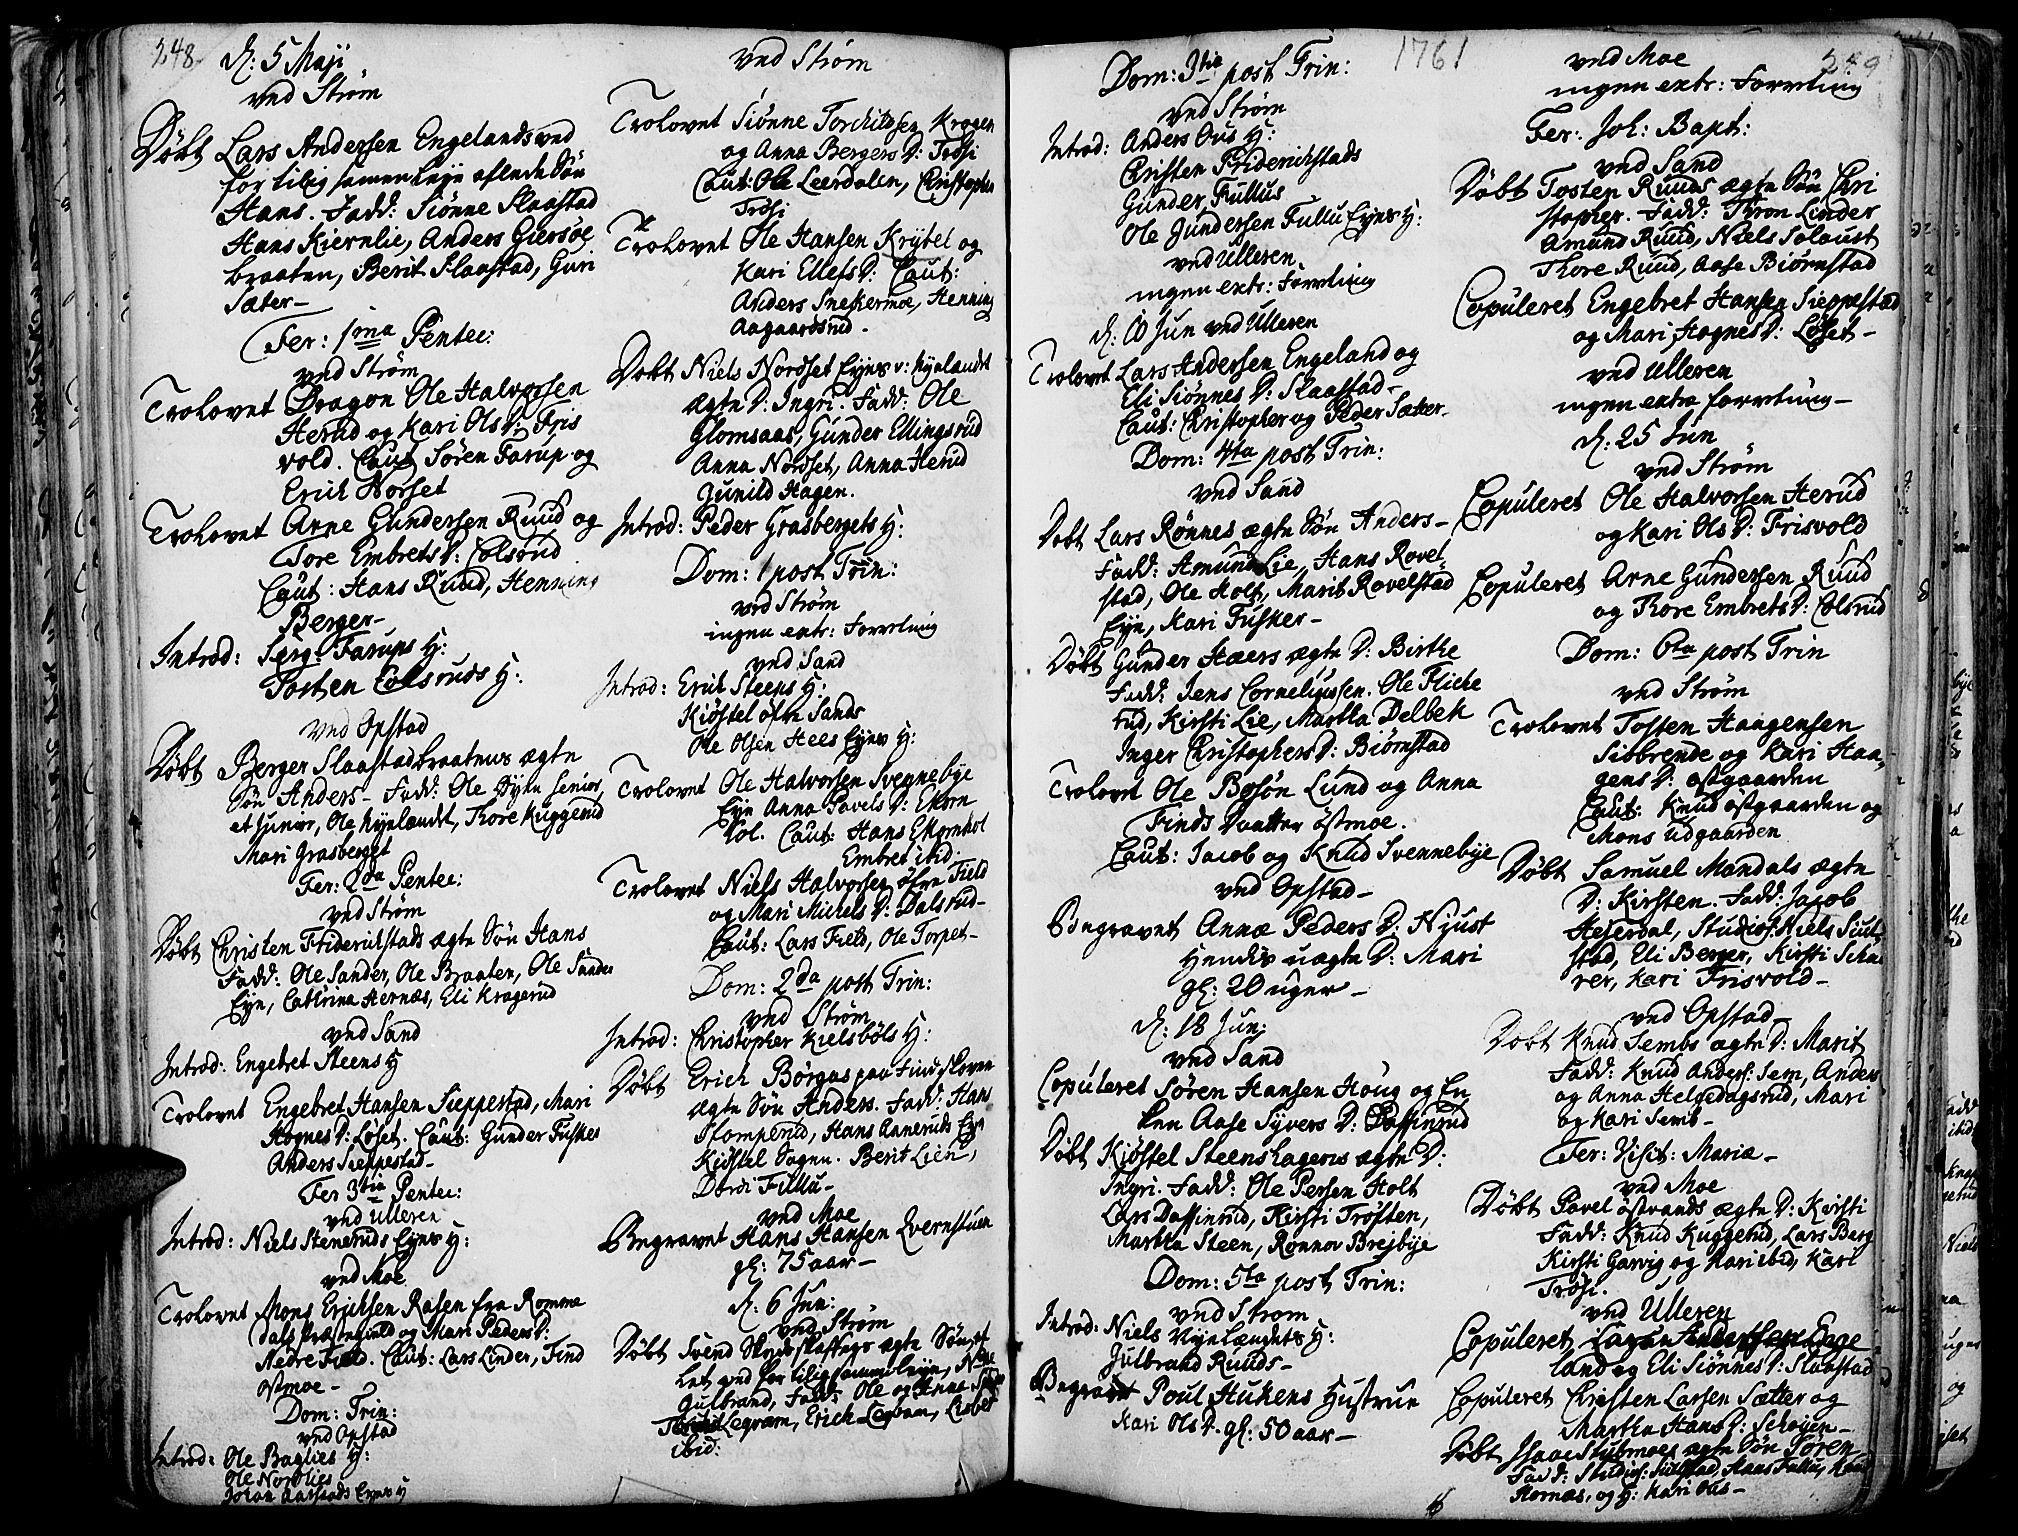 248
d: 5 Maji
ved Strøm
Døbt Lars Andersen Engelands ved
for tilig samenleye aflede Søn
Hans. Fadd: Siønne Slaastad
Hans Kiernlie, Anders Giersøe
braaten, Berit Slaastad, Guri
Sæter-
Fer: 1ma Pentec:
ved Strøm
Trolovet Dragon Ole Halvorsen
Herud og Kari Ols D: Fris
vold. Caut Søren Farup og
Erich Norset
Trolovet Arne Gundersen Ruud og
Tore Embrets D: Colsrud
Caut: Hans Ruud, Henning
Berger-
Introd: Serg: Farups H:
Tosten Colsruds H:
ved Opstad
Døbt Berger Slaastadbraatens ægte
Søn Anders- Fadd: Ole Dyte senior,
et junior, Ole Nylændet, Thore Kuggerud
Mari Grasberget
Fer: 2da Pentec:
ved Strøm
Døbt Christen Friderichstads ægte Søn Hans
Fadd: Ole Sander, Ole Braaten, Ole Sander
Eye, Cathrina Hernæs, Eli Kragerud
ved Sand
Introd: Engebret Steens H
Trolovet Engebret Hansen Sieppestad, Mari
Hognes D: Løset. Caut: Gunder Fusker
Anders Sieppestad-
Fer 3tia Pentec:
ved Ulleren
Introd: Niels Steneruds Eyes H:
ved Moe
Trolovet Mons Erichsen Rasen fra Romme
dals Præstegield og Mari Peders D:
Nedre Field. Caut: Lars Linder, Find
Ostmoe-
Dom: Trin:
ved Opstad
Introd: Ole Baglies H:
Ole Nordlies
Johan Aarstads Eyes H
ved Strøm
Trolovet Siønne Torchildsen Krogen
og Anna Bergers D: Trøsi
Caut: Ole Leerdalen, Christopher
Trøsi
Trolovet Ole Hansen Krytel og
Kari Ellefs D: Caut:
Anders Sneskermoe, Henning
Aagaardsrud-
Døbt Niels Nordset Eyes v: Nylændet
ægte D: Ingri. Fadd: Ole
Glomsaas, Gunder Ellingsrud
Anna Nordset, Anna Herud
Gunild Hagen.
Introd: Peder Grasbergets H:
Dom: 1 post Trin:
ved Strøm
ingen extr: Forretning
ved Sand
Introd: Erich Steens H:
Kiøstel øfre Sands
Ole Olsen Hees Eyes H:
Trolovet Ole Halvorsen Svegnebye
Eye Anna Pavels D: Ekorn
hol. Caut: Hans Ekornhol
Embret ibid:
Trolovet Niels Halvorsen øfre Field
og Mari Michels D: Dalsrud-
Caut: Lars Field, Ole Torpet-
Dom: 2da post Trin:
ved Strøm
Introd: Christopher Kielsbøls H:
Døbt Erich Børgas paa Findskoven
ægte Søn Anders. Fadd: Hans
Stomperud, Hans Anneruds Eye
Kiøstel Sagen. Berit Lien,
Dordi Fullu-
ved Moe
Begravet Hans Hansen Qvernstuen
gl: 75 aar-
d: 6 Jun:
ved Strøm
Døbt Svend ægte Søn
Let ved for tilig sammenleye,
Gulbrand, Fadd: Ole og Anne
Legram, Erich Legram, Lisbet
ibid:
1761
Dom: 3tia post Trin:
ved Strøm
Introd: Anders Ous H:
Christen Friderichstads
Gunder Fullus
Ole Gundersen Fullu Eyes H:
ved Ulleren
ingen extr: Forretning
d: 10 Jun ved Ulleren
Trolovet Lars Andersen Engeland og
Eli Siønnes D: Slaastad-
Caut: Christopher og Peder Sæter-
Dom: 4ta post Trin:
ved Sand
Døbt Lars Rønnes ægte Søn Anders-
Fadd: Amund Lie, Hans Rovel
stad, Ole Holt, Marit Rovelstad
Eye, Kari Fusker-
Døbt Gunder Haers ægte D: Birthe
Fadd: Jens Corneliussen. Ole Fliche
rud, Kirsti Lie, Martha Delbek
Inger Christophers D: Biørnstad
Trolovet Ole Besøn Lund og Anna
Finds Daatter Østmoe.
Caut: Jacob og Knud Svennebye
ved Opstad-
Begravet Annæ Peders D: Njust
Hendes uægte D: Mari
gl: 20 uger-
d: 18 Jun:
ved Sand
Copuleret Søren Hansen Houg og En
ken Aase Syvers D: Daffinrud
Døbt Kiøstel Steenshagens ægte D:
Ingri. Fadd: Ole Persen Holt
Lars Daffinrud, Kirsti Trøften,
Martha Steen, Rønnov Brejbye
Dom: 5ta post Trin:
ved Strøm
Introd: Niels Nylændets H:
Gulbrand Ruuds-
Begravet Poul Hukens Hustrue
Kari Ols D. gl: 50 aar-
249
ved Moe
ingen extr: Forretning
Fer: Joh: Bapt:
ved Sand
Døbt Tosten Ruuds ægte Søn Chri
stopher. Fadd: Tron Linder
Amund Ruud, Niels Soloust
Thore Ruud, Aase Biørnstad
Copuleret Engebret Hansen Sieppestad
og Mari Hognes D: Løset-
ved Ulleren
ingen extra forretning-
d: 25 Jun
ved Strøm
Copuleret Ole Halvorsen Herud
og Kari Ols D: Frisvold
Copuleret Arne Gundersen Ruud
og Thore Embrets D: Colsrud
Dom: 6ta post Trin
ved Strøm
Trolovet Tosten Haagensen
Sibbrende og Kari Haa
gens D: Østgaarden
Caut: Knud Østgaarden og
Mons Udgaarden
Døbt Samuel Mandals ægte
D: Kirsten. Fadd: Jacob
Heierdal, Studios: Niels Siul
stad, Eli Berger, Kirsti Scha
rer, Kari Frisvold-
ved Opstad-
Døbt Knud Sembs ægte D: Marit
Fadd: Knud Anders: Sem, Anders
og Anna Helgedagsrud, Mari
og Kari Semb-
Fer: Visit: Mariæ-
ved Moe
Døbt Pavel Østvands ægte D: Kirsti
Fadd: Knud Kuggerud, Lars Berg
Kirsti Garvig og Kari ibid, Kari
Trøsi.
ved Ulleren
Copuleret Lars Andersen Enge
land og Eli Siønnes D: Slaastad
Copuleret Christen Larsen Sætter og
Martha Hans D: Schøyen-
Døbt Isaac Stubmoes ægte Søn Søren
Fadd: Studios: Siulstad, Hans Fullu, Knud
Hornæs, og H: Kari Ous-